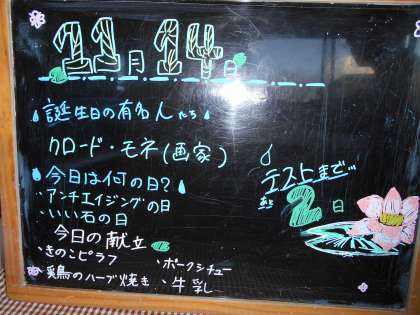 11月14日
誕生日の有名人たち
クロード・モネ(画家)
今日は何の日?
・アンチエイジングの日
・いい石の日
テストまで…
2日
今日の献立
・きのこピラフ
・ポークシチュー
・鶏鳥のハーブ焼き
・牛乳